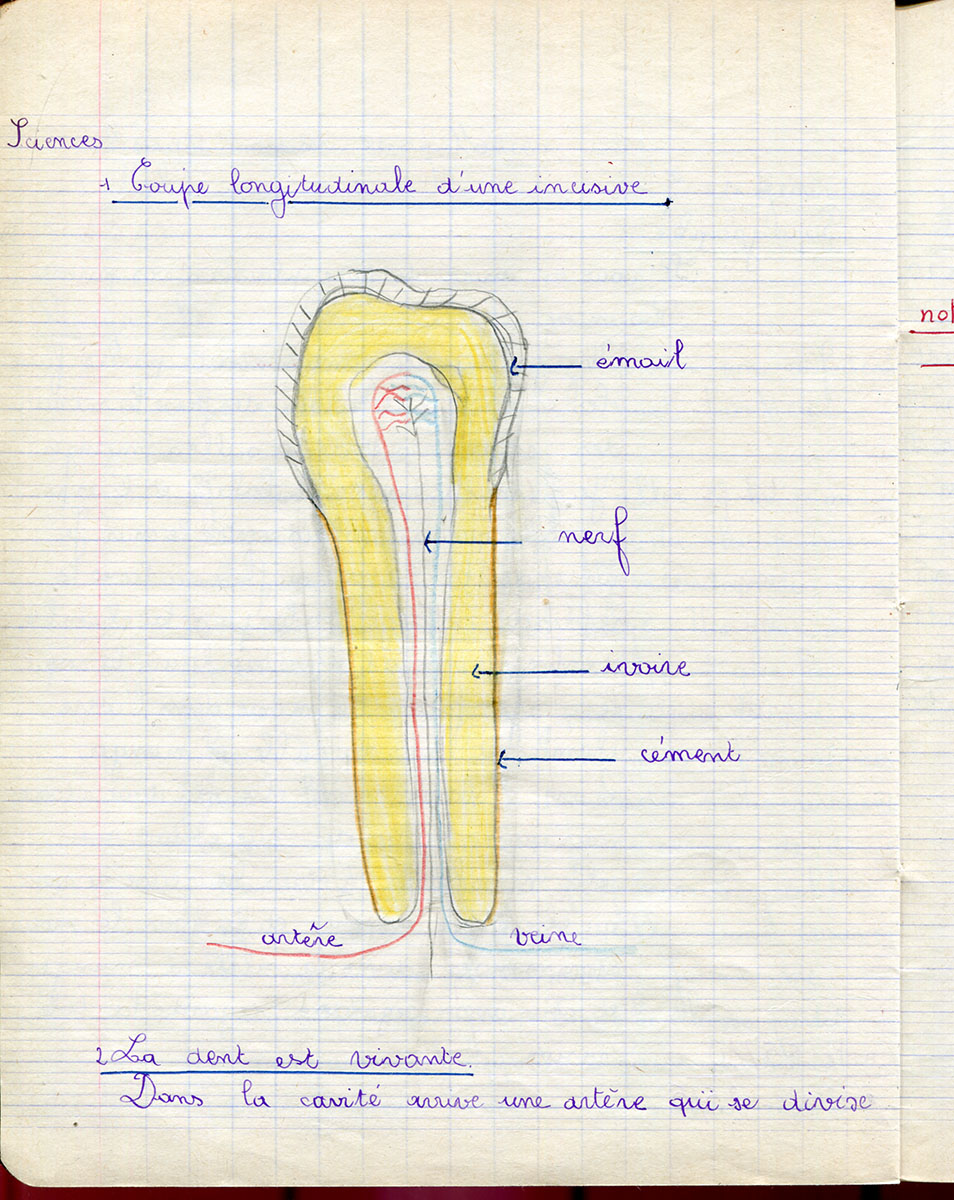 Sciences
1 Coupe longitudinale d'une incisive
émail
nerf
ivoire
cément
artère
veine
2 La dent est vivante.
Dans la cavité arrive une artère qui se divise